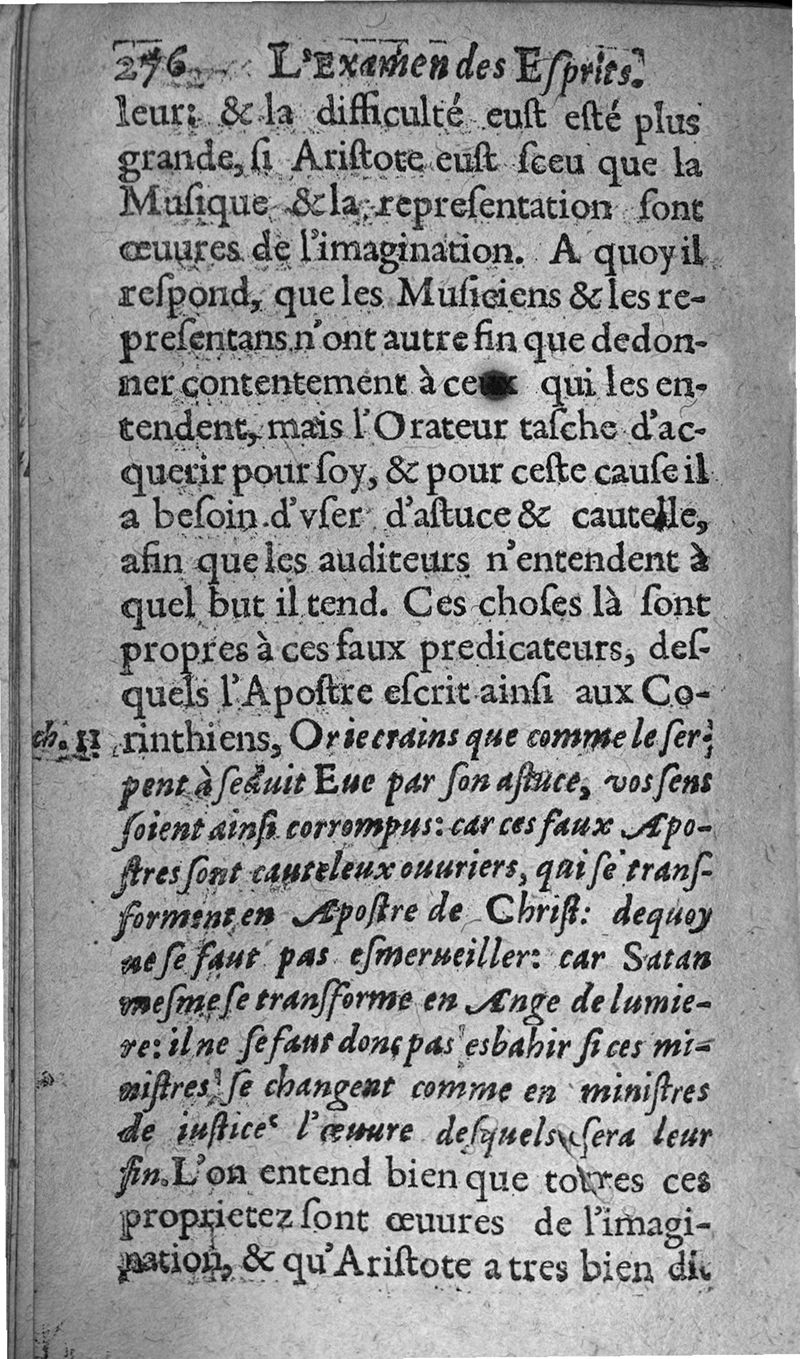 276 L'Examen des Esprits.
leur: & la difficulté eust esté plus
grande, si Aristote eust sceu que la
Musique & la representation sont
œuures de l'imagination. A quoy il
respond, que les Musiciens & les re-
presentans n'ont autre fin que de don-
ner contentement à ceux qui les en-
tendent, mais l'Orateur tasche d'ac-
querir pour soy, & pour ceste cause il
a besoin d'vser d'astuce & cautelle,
afin que les auditeurs n'entendent à
quel but il tend. Ces choses là sont
propres à ces faux predicateurs, des-
quels l'Apostre escrit ainsi aux Co-
ch. 11 rinthiens, Or ie crains que comme le ser-
pent à seduit Eue par son astuce, vos sens
soient ainsi corrompus: car ces faux Apo-
stres sont cauteleux ouuriers, qui se trans-
forment en Apostre de Christ: dequoy
ne se faut pas esmerueiller: car Satan
mesme se transforme en Ange de lumie-
re: il ne se faut donc pas esbahir si ces mi-
nistres se changent comme en ministres
de iustice l'œuure desquels sera leur
fin. L'on entend bien que toutes ces
proprietez sont œuures de l'imagi-
nation, & qu'Aristote a tres bien dit